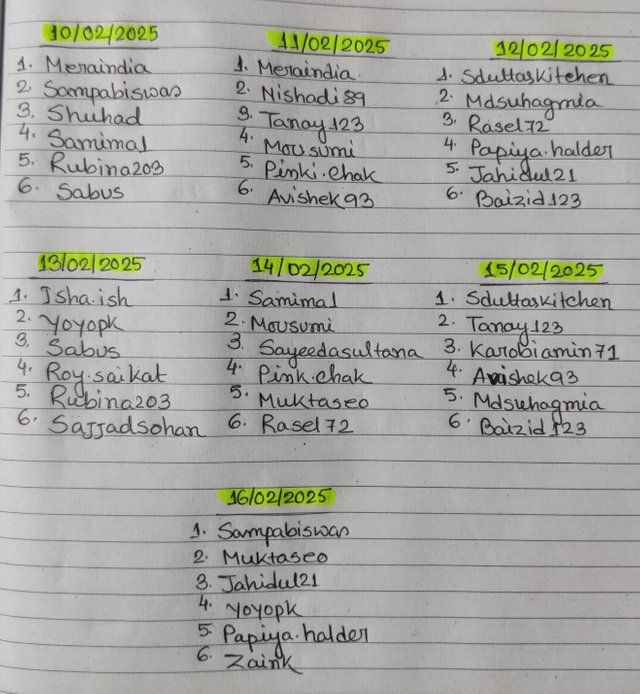 10/02/2025
1. Meraindia
2 Sampabiswas
3. Shuhad
4. Samimal
5. Rubina203
6. Sabus
11/02/2025
1. Meraindia
2. Nishadi89
3. Tanay123
4. Mousumi
5. Pinki.chak
6. Avishek93
12/02/2025
1. Sduttaskitchen
2. Mdsuhagmia
3. Rasel72
4. Papiya.halder
5. Jahidul21
6. Baizid123
13/02/2025
1. Isha.ish
2. Yoyopk
3. Sabus
4. Roy.saikat
5. Rubina203
6. Sajjadsohan
14/02/2025
1. Samimal
2. Mousumi
3. Sayeedasultana
4. Pink.chak
5. Muktaseo
6. Rasel72
15/02/2025
1. Sduttaskitchen
2. Tanay123
3. Karobiamin71
4. Avishek93
5. Mdsuhagmia
6. Baizid123
16/02/2025
1. Sampabiswas
2. Muktaseo
3. Jahidul21
4. Yoyopk
5. Papiya.halder
6. Zaink